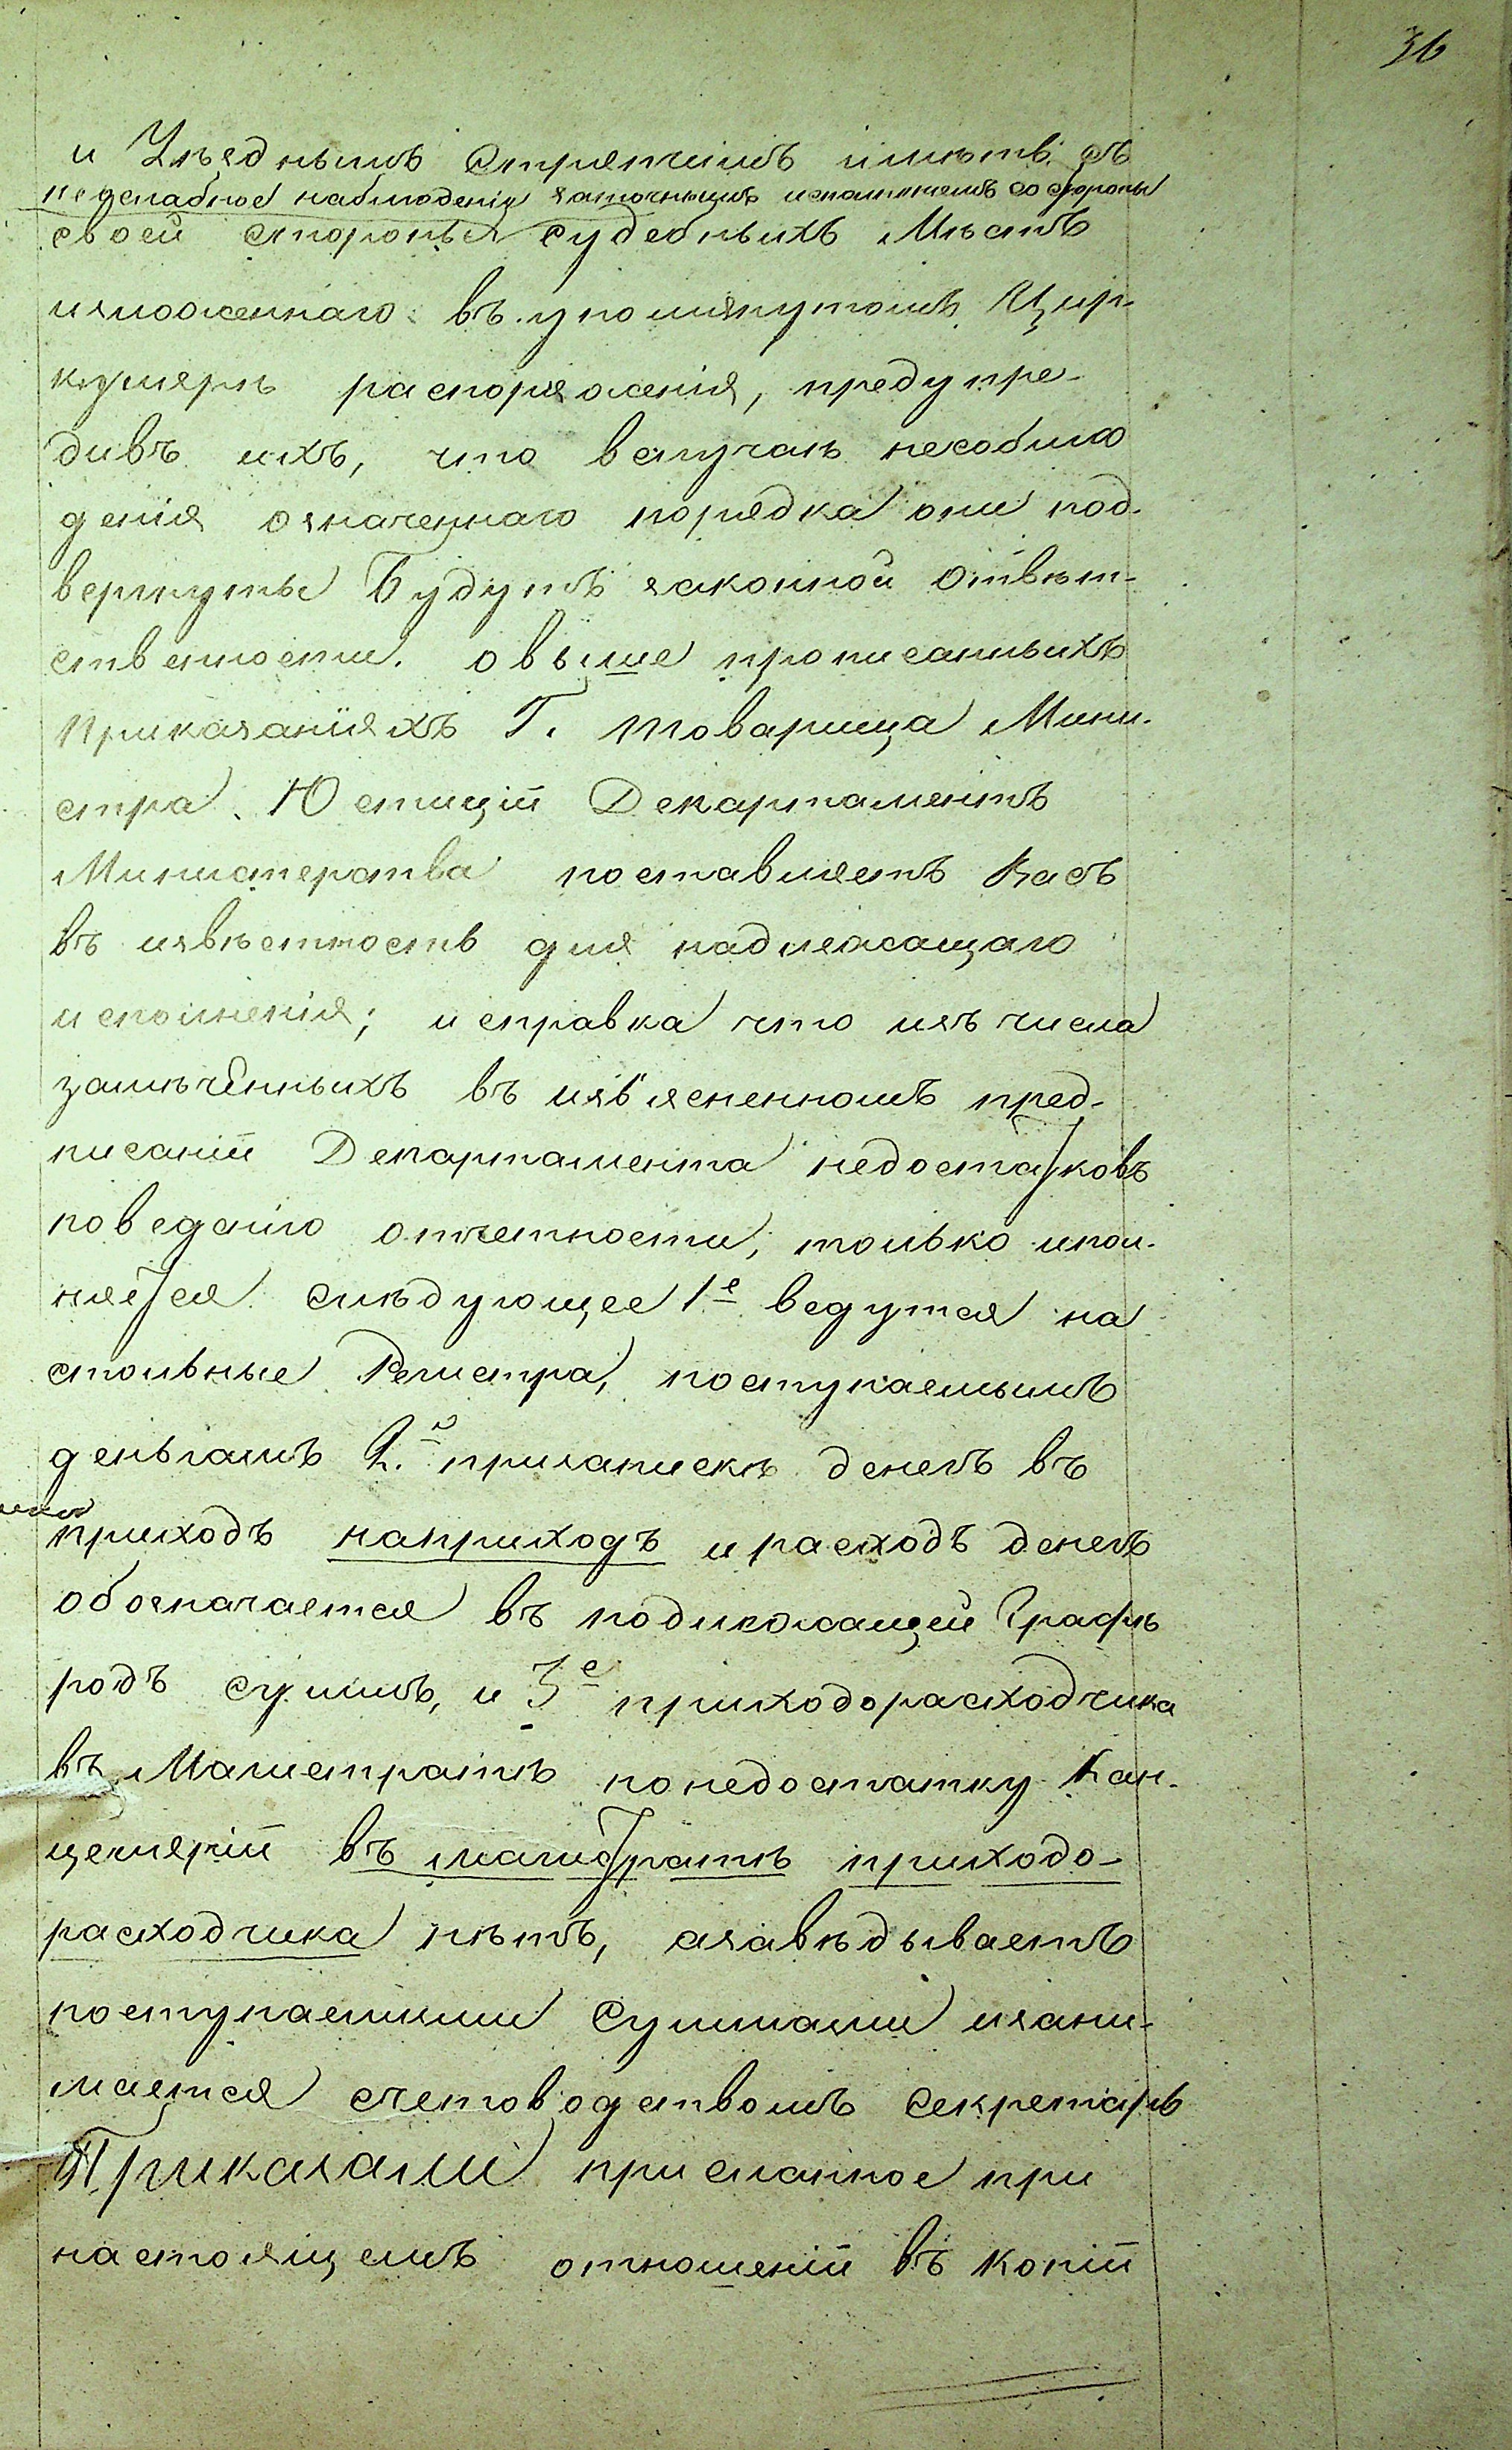 36
и Уѣзднымъ Стряпчимъ имѣть съ
неослабное наблюденіе заточнымъ исполненіемъ со стороны
своей стороны судебныхъ Мѣстъ
изложеннаго въ упомянутомъ Цир-
кулярѣ распоряженія, предупре-
дивъ ихъ, что вслучаѣ несоблю
денія означеннаго порядка они под-
вергнуты будутъ законной отвѣт-
ственности. овыше прописанныхъ
приказаніяхъ Г. Товарища Мини-
стра Юстиціи Департаментъ
Министерства поставляетъ Васъ
въ извѣстность для надлежащаго
исполненія; и справка что изъ числа
замѣченныхъ въ изъясненномъ пред-
писаніи Департамента недостатковъ
поведенію отчетности, только испол-
няется слѣдующее 1е ведутся на
стольные Регистра, поступаемымъ
деньгамъ 2.е призапискѣ денегъ въ
приходъ наприходъ и расходъ денегъ
обозначается въ подлежащей Графѣ
родъ суммъ, и 3е приходорасходчика
въ Магистратѣ понедостатку Кан-
целяріи въ магистратѣ приходо-
расходчика нѣтъ, азавѣдываетъ
поступаемыми Суммами изани-
мается счетоводствомъ Секретарь
Приказали присланное при
настоящемъ отношеніи въ копіи